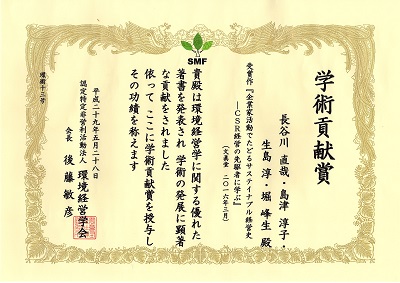 SMF
環術十三号
学術貢献賞
長谷川 直哉・島津 淳子・
生島 淳・堀 峰生 殿
受賞作『企業家活動でたどるサステイナブル経営史
―CSR経営の先駆者に学ぶ』
(文眞堂 二〇一六年三月)
貴殿は環境経営学に関する優れた
著書を発表され 学術の発展に顕著
な貢献をされました
依って ここに学術貢献賞を授与し
その功績を称えます
平成二十九年五月二十八日
認定特定非営利活動法人 環境経営学会
会長 後藤敏彦